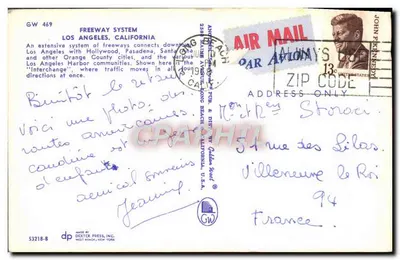 GW 469
FREEWAY SYSTEM
LOS ANGELES, CALIFORNIA
An extensive system of freeways connects down
Los Angeles with Hollywood, Pasadena, Santa
and other Orange County cities, and the
Los Angeles Harbor communities. Shown here
"Interchange", where traffic moves in
directions at once.
Bientôt le retour
Voici une photo des
routes américaines
d'enfants
amical souvenir
Jeannine
53218-B
dp
MADE BY
DEXTER PRESS, INC.
WEST NYACK, NEW YORK
LONG BEACH
CALIFORNIA, U.S.A.
GW
LONG BEACH
CAL
AIR MAIL
PAR AVION
ALWAYS
ZIP CODE
JOHN F. KENNEDY
13c
ADDRESS ONLY
Mr et Storaci
51 rue des Lilas
Villeneuve le Roi
94
France